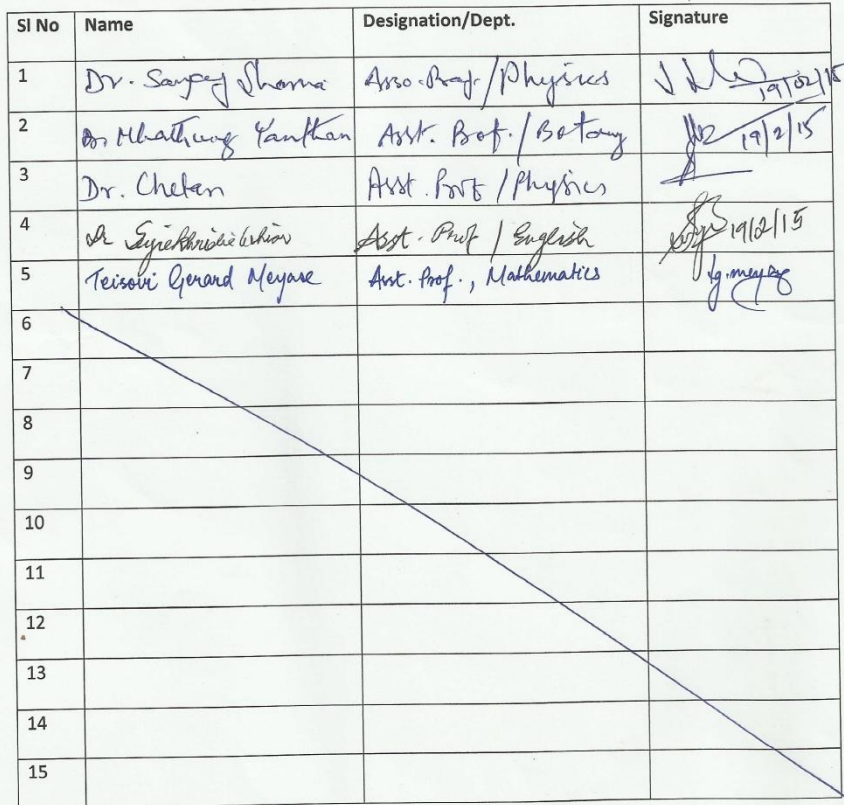 Sl No Name Designation/Dept. Signature
1 Dr. Sanjay Sharma Asso. Prof. / Physics 19/02/15
2 Dr Mhathung Yanthan Asst. Prof. / Botany 19/2/15
3 Dr. Chetan Asst. Prof / Physics
4 Dr Asst. Prof / English 19/2/15
5 Teisovi Gerard Meyase Asst. Prof., Mathematics tg.meyase
6
7
8
9
10
11
12
13
14
15